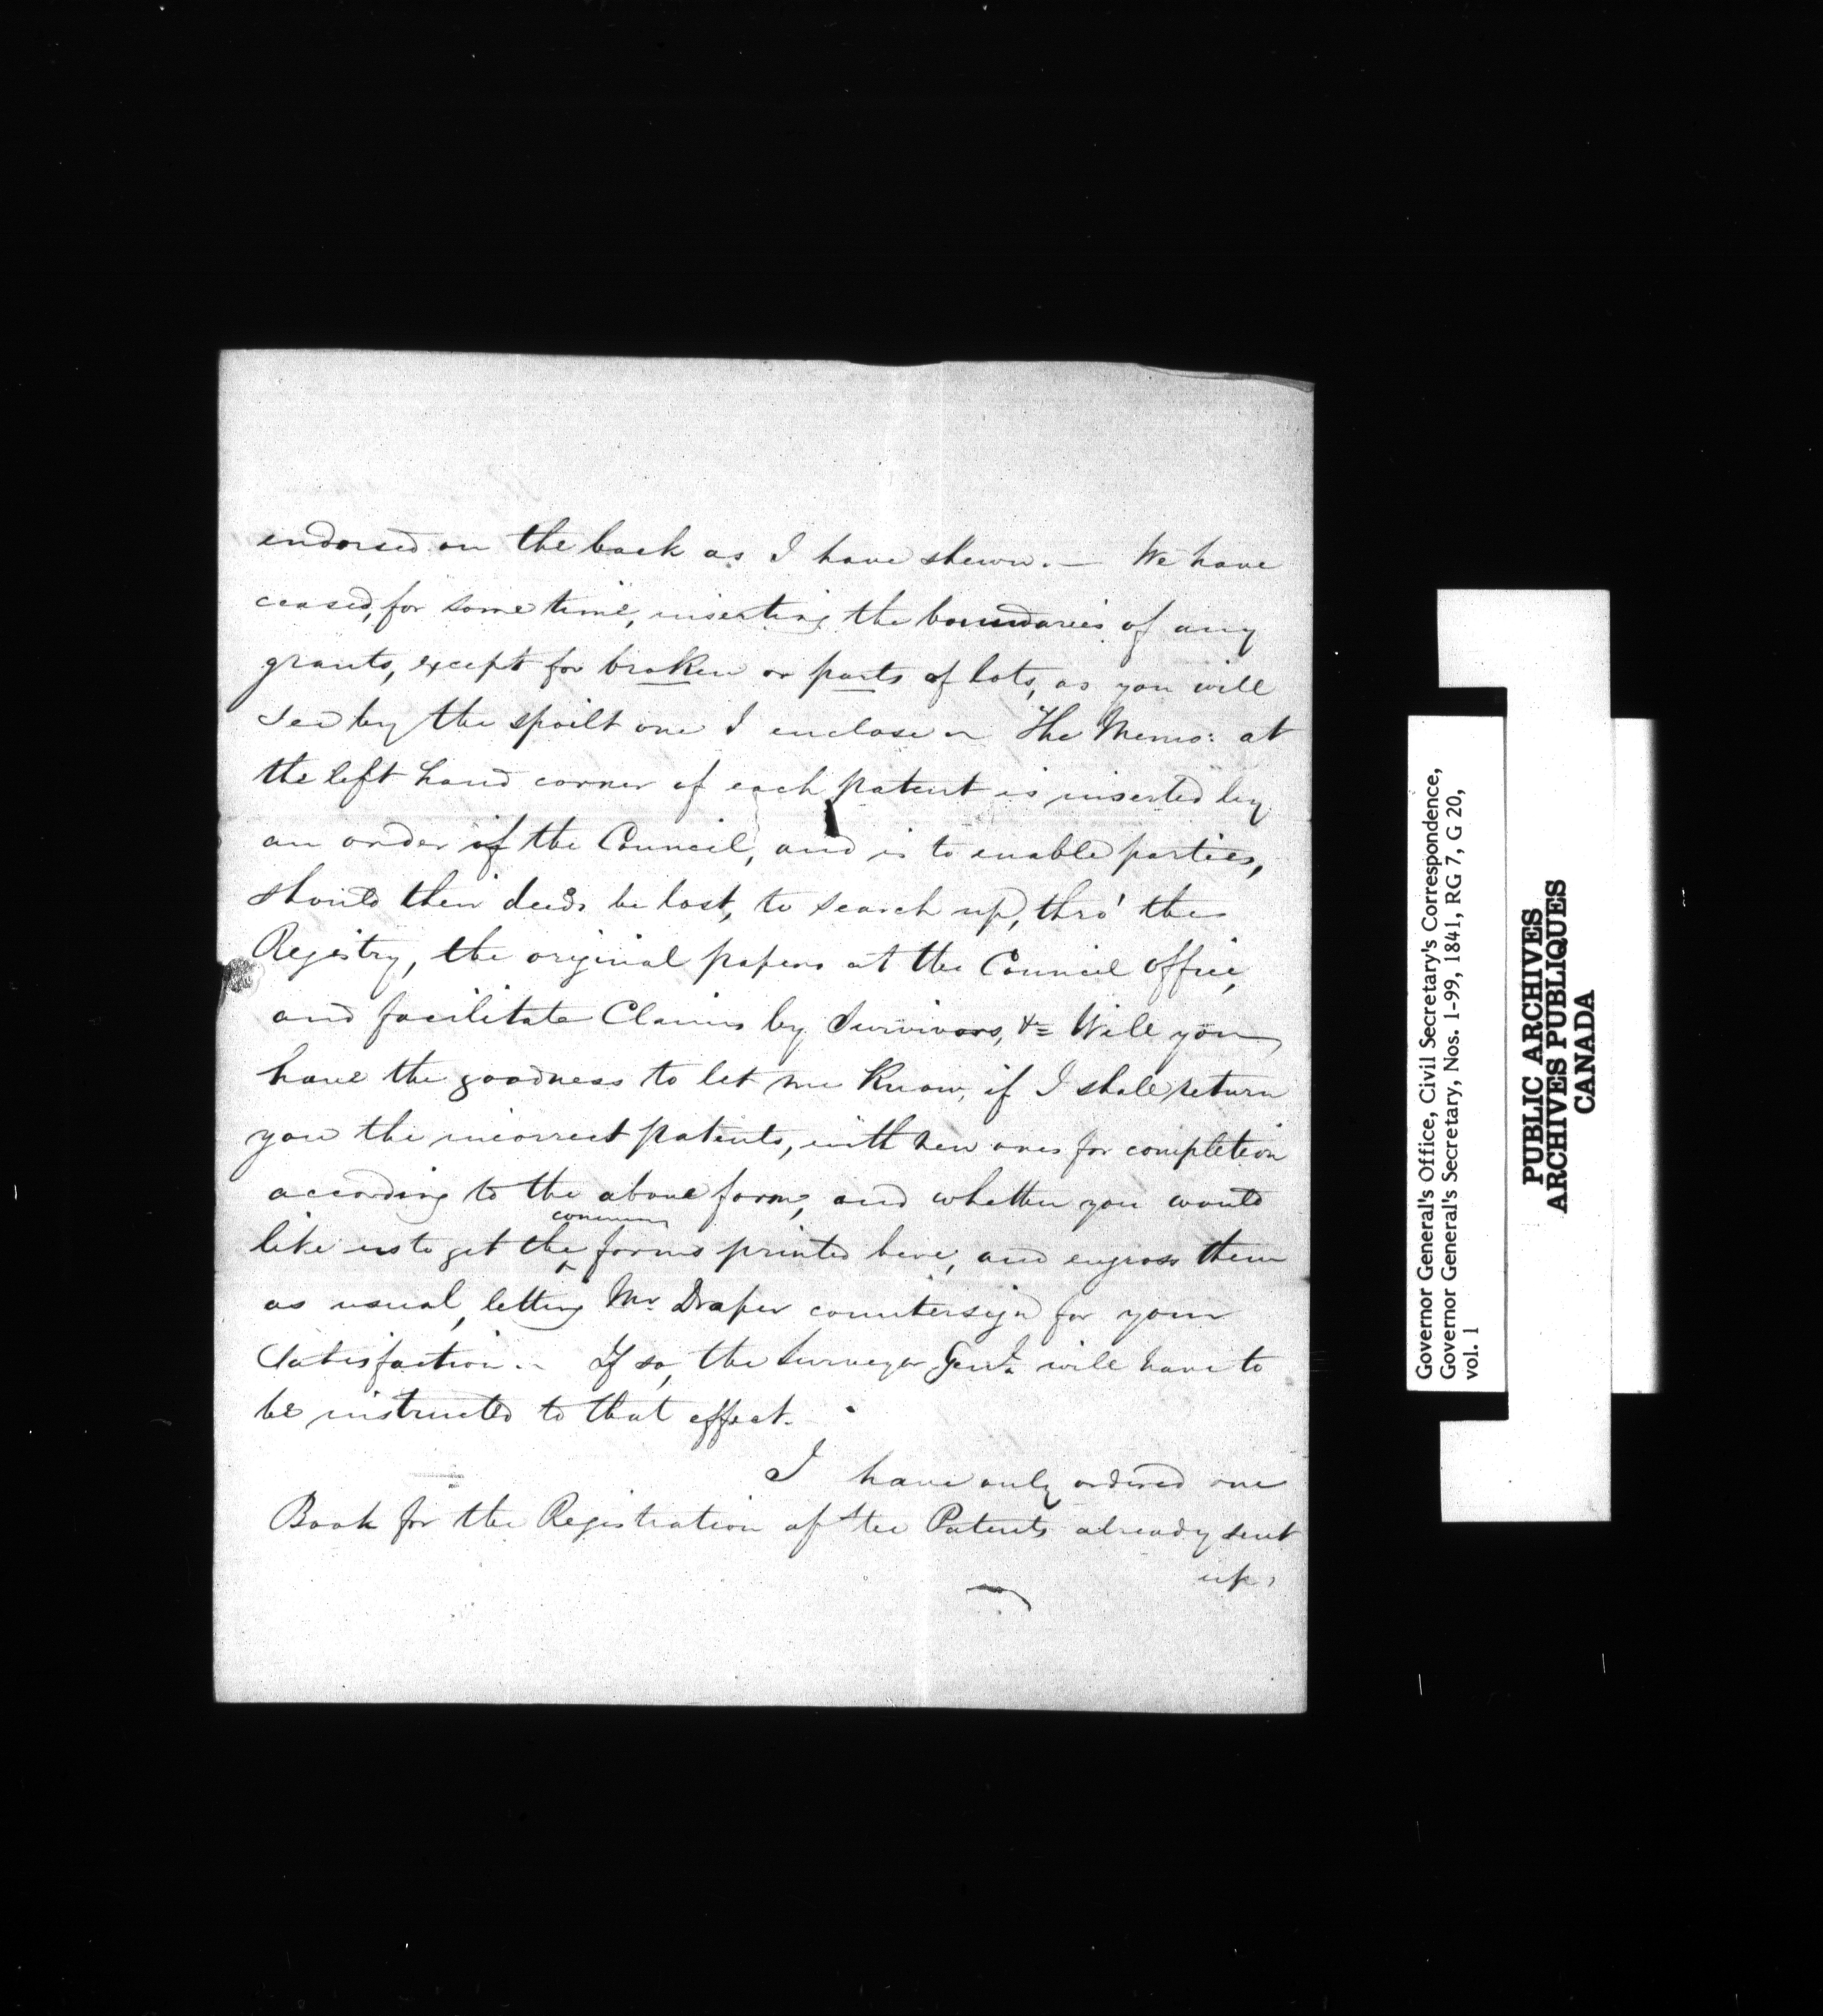 endorsed on the back as I have shewn. — We have
ceased, for some time, inserting the boundaries of any
grants, except for broken or parts of lots, as you will
see by the spoilt one I enclose ~ The Memo: at
the left hand corner of each patent is inserted by
an order of the Council, and is to enable parties,
should their deeds be lost, to search up, thro' the
Registry, the original papers at the Council office,
and facilitate Claims by Survivors, &c Will you
have the goodness to let me Know, if I shall return
you the incorrect patents, with new ones for completion
according to the above form, and whether you would
common
like us to get the ^ forms printed here, and engross them
as usual, letting Mr Draper countersign for your
Satisfaction. ~ If so, the Surveyor Genl. will have to
be instructed to that effect.
I have only ordered one
Book for the Registration of the Patents already sent
up,
Governor General's Office, Civil Secretary's Correspondence,
Governor General's Secretary, Nos. 1-99, 1841, RG 7, G 20,
vol. 1
PUBLIC ARCHIVES
ARCHIVES PUBLIQUES
CANADA